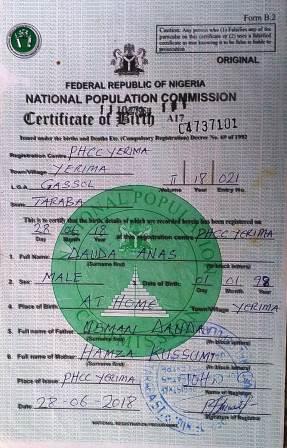 Form B.2
Caution: Any person who (1) Falsifies any of the
particular on this certificate or (2) uses a falsified
certificate as true knowing it to be false is liable to
prosecution
ORIGINAL
FEDERAL REPUBLIC OF NIGERIA
NATIONAL POPULATION COMMISSION
Certificate of Birth A17
C4737101
Issued under the births and Deaths Etc. (Compulsory Registration) Decree No. 69 of 1992
Registration Centre PHCC YERIMA
Town/Village YERIMA
L.G.A. GASSOL I 18 021
Volume Year Entry No.
State TARABA
This is to certify that the birth, details of which are recorded herein has been registered on
28 06 18 at the registration centre PHCC YERIMA
Day Month Year
1. Full Name: DAUDA ANAS
(Surname first) (In block letters)
2. Sex: MALE 3. Date of Birth: 01 01 98
Day Month Year
4. Place of Birth AT HOME Town/Village YERIMA
5. Full name of Father: USMAN DANDA
(Surname first) (In block letters)
6. Full name of Mother: HAMZA KUSSUMI
(Surname first) (In block letters)
Place of Issue PHCC YERIMA JOHN
Name of Registrar
Date 28-06-2018
Signature of Registrar
NATIONAL REGISTRATION PROGRAMME